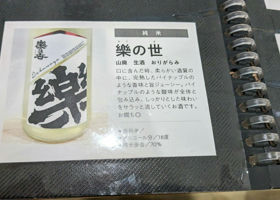 純米
樂の世
山廃 生酒 おりがらみ
口に含んだ時、柔らかい酒質の
中に、完熟したパイナップルの
ような香味と旨ジューシー。パイ
ナップルのような酸味が全体と
包み込み、しっかりとした味わい
をサラッと流していくお酒です。
お燗も◎
アルコール分/18度
精米歩合/70%
樂